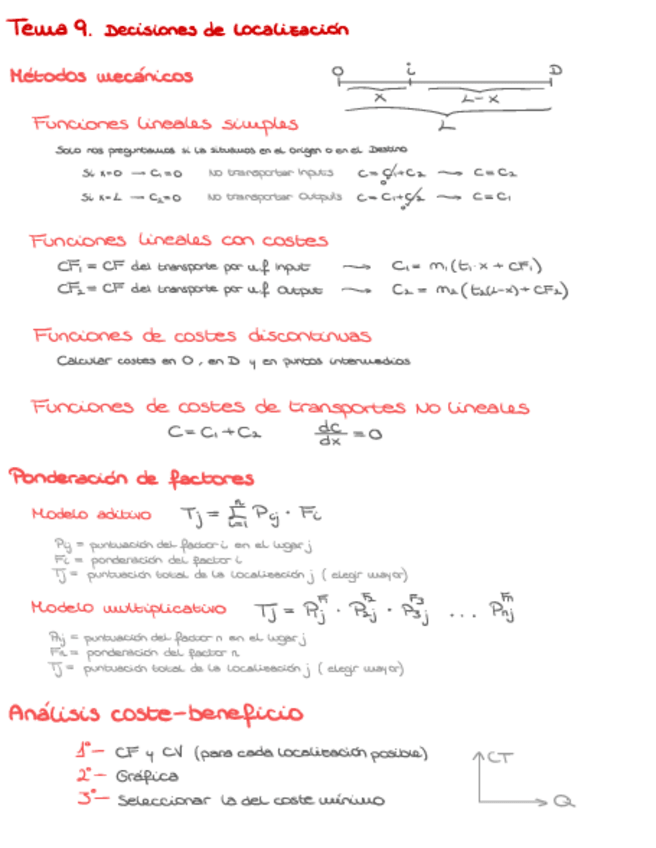 Tema 9. Decisiones de localización
Métodos mecánicos
O i D
x L-x
L
Funciones lineales simples
Solo nos preguntamos si la situamos en el origen o en el Destino
Si x=0 → C₁=0 No transportar Inputs C=C₁+C₂ → C=C₂
0
Si x=L → C₂=0 No transportar Outputs C=C₁+C₂ → C=C₁
0
Funciones lineales con costes
CF₁ = CF del transporte por u.f Input → C₁= m₁(t₁·x + CF₁)
CF₂ = CF del transporte por u.f Output → C₂ = m₂(t₂(L-x)+CF₂)
Funciones de costes discontinuas
Calcular costes en O, en D y en puntos intermedios
Funciones de costes de transportes No lineales
C= C₁+C₂ dc/dx = 0
Ponderación de factores
Modelo aditivo Tj = Σⁿᵢ₌₁ Pij · Fi
Pij = puntuación del factor i en el lugar j
Fi = ponderación del factor i
Tj = puntuación total de la localización j (elegir mayor)
Modelo multiplicativo Tj = P₁j^F₁ · P₂j^F₂ · P₃j^F₃ ... Pnj^Fn
Pnj = puntuación del factor n en el lugar j
Fn = ponderación del factor n
Tj = puntuación total de la localización j (elegir mayor)
Análisis coste-beneficio
1º- CF y CV (para cada localización posible)
2º- Gráfica
3º- Seleccionar la del coste mínimo
CT
Q